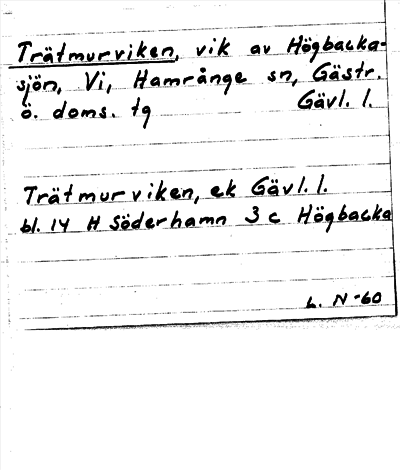 Trätmurviken, vik av Högbacka-
sjön, Vi, Hamrånge sn, Gästr.
ö. doms. tg Gävl. l.
Trätmurviken, ek Gävl. l.
bl. 14 H Söderhamn 3 c Högbacka
L. N-60